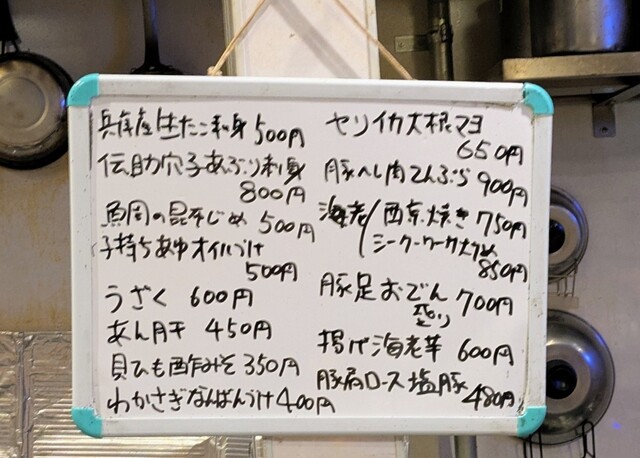 兵庫産生たこ刺身 500円
伝助穴子あぶり刺身
800円
鯛の昆布じめ 500円
子持ちあゆオイルづけ
500円
うざく 600円
あん肝 450円
貝ひも酢みそ 350円
わかさぎなんばんづけ 400円
セリイカ大根マヨ
650円
豚ヘレ肉てんぷら 900円
海老/西京焼き 750円
シークヮーサー〆
850円
豚足おでん 700円
揚げ海老芋 600円
豚肩ロース塩豚 480円